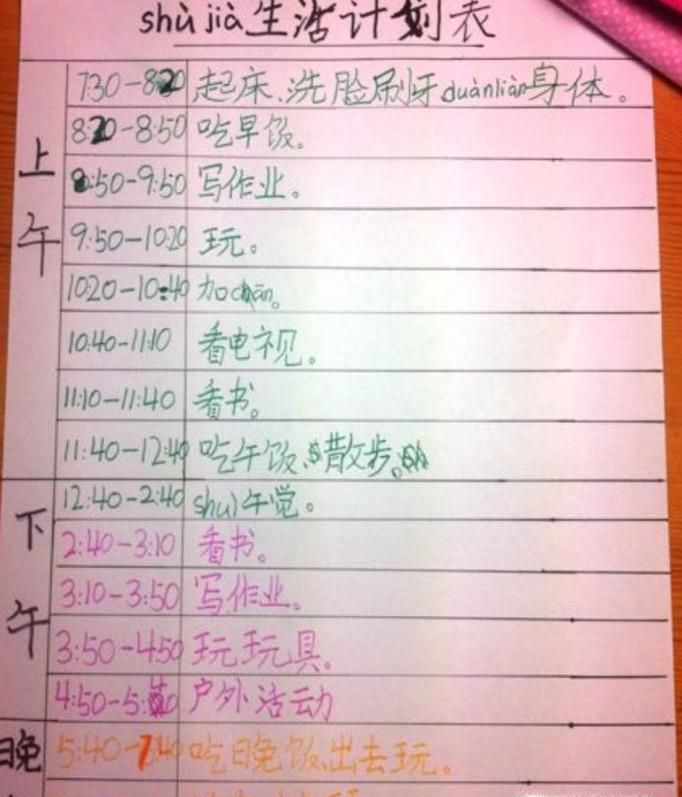 shǔ jià 生活计划表
上午
7:30-8:20 起床、洗脸刷牙duànliàn身体。
8:20-8:50 吃早饭。
8:50-9:50 写作业。
9:50-10:20 玩。
10:20-10:40 加cān。
10:40-11:10 看电视。
11:10-11:40 看书。
11:40-12:40 吃午饭、散步。
下午
12:40-2:40 shuì午觉。
2:40-3:10 看书。
3:10-3:50 写作业。
3:50-4:50 玩玩具。
4:50-5:40 户外活动
晚
5:40-7:40 吃晚饭、出去玩。